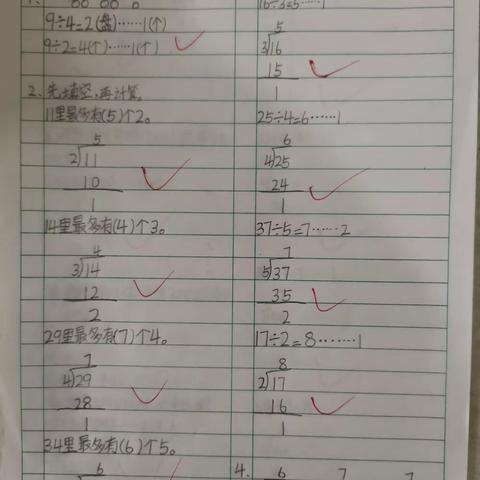 1、
9÷4=2(盘)……1(个)
9÷2=4(个)……1(个)
2、先填空,再计算。
11里最多有(5)个2。
5
2 11
10
1
14里最多有(4)个3。
4
3 14
12
2
29里最多有(7)个4。
7
4 29
28
1
34里最多有(6)个5。
6
16÷3=5……1
5
3 16
15
1
25÷4=6……1
6
4 25
24
1
37÷5=7……2
7
5 37
35
2
17÷2=8……1
8
2 17
16
1
4、
6 7 7